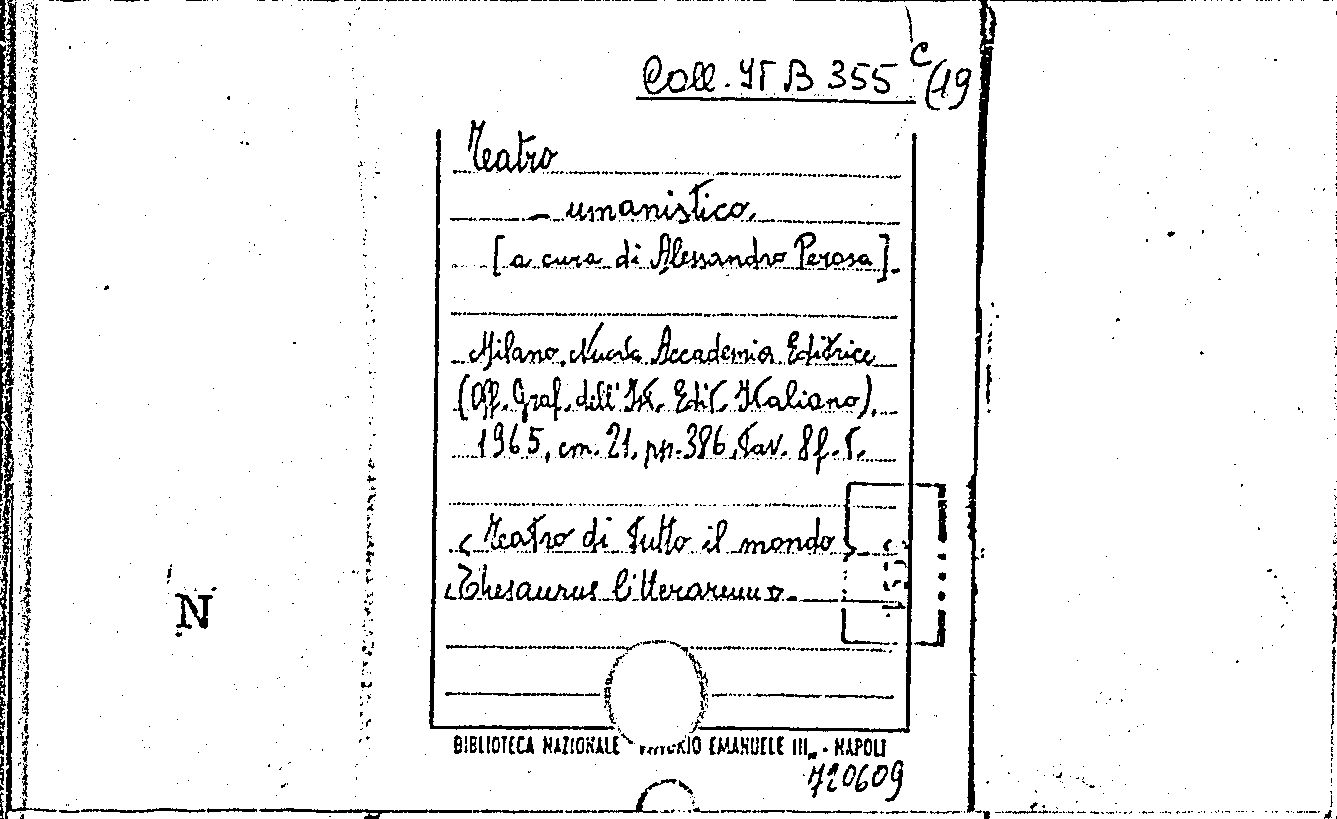 Coll. IT B 355 C/19
Teatro
– umanistico.
[a cura di Alessandro Perosa].
Milano, Nuova Accademia Editrice
(Off. Graf. dell'Ist. Edit. Italiano),
1965, cm. 21, pp. 386, tav. 8 f. t.
< Teatro di tutto il mondo >
«Thesaurus litterarum».
N
BIBLIOTECA NAZIONALE EMANUELE III„ - NAPOLI
720609